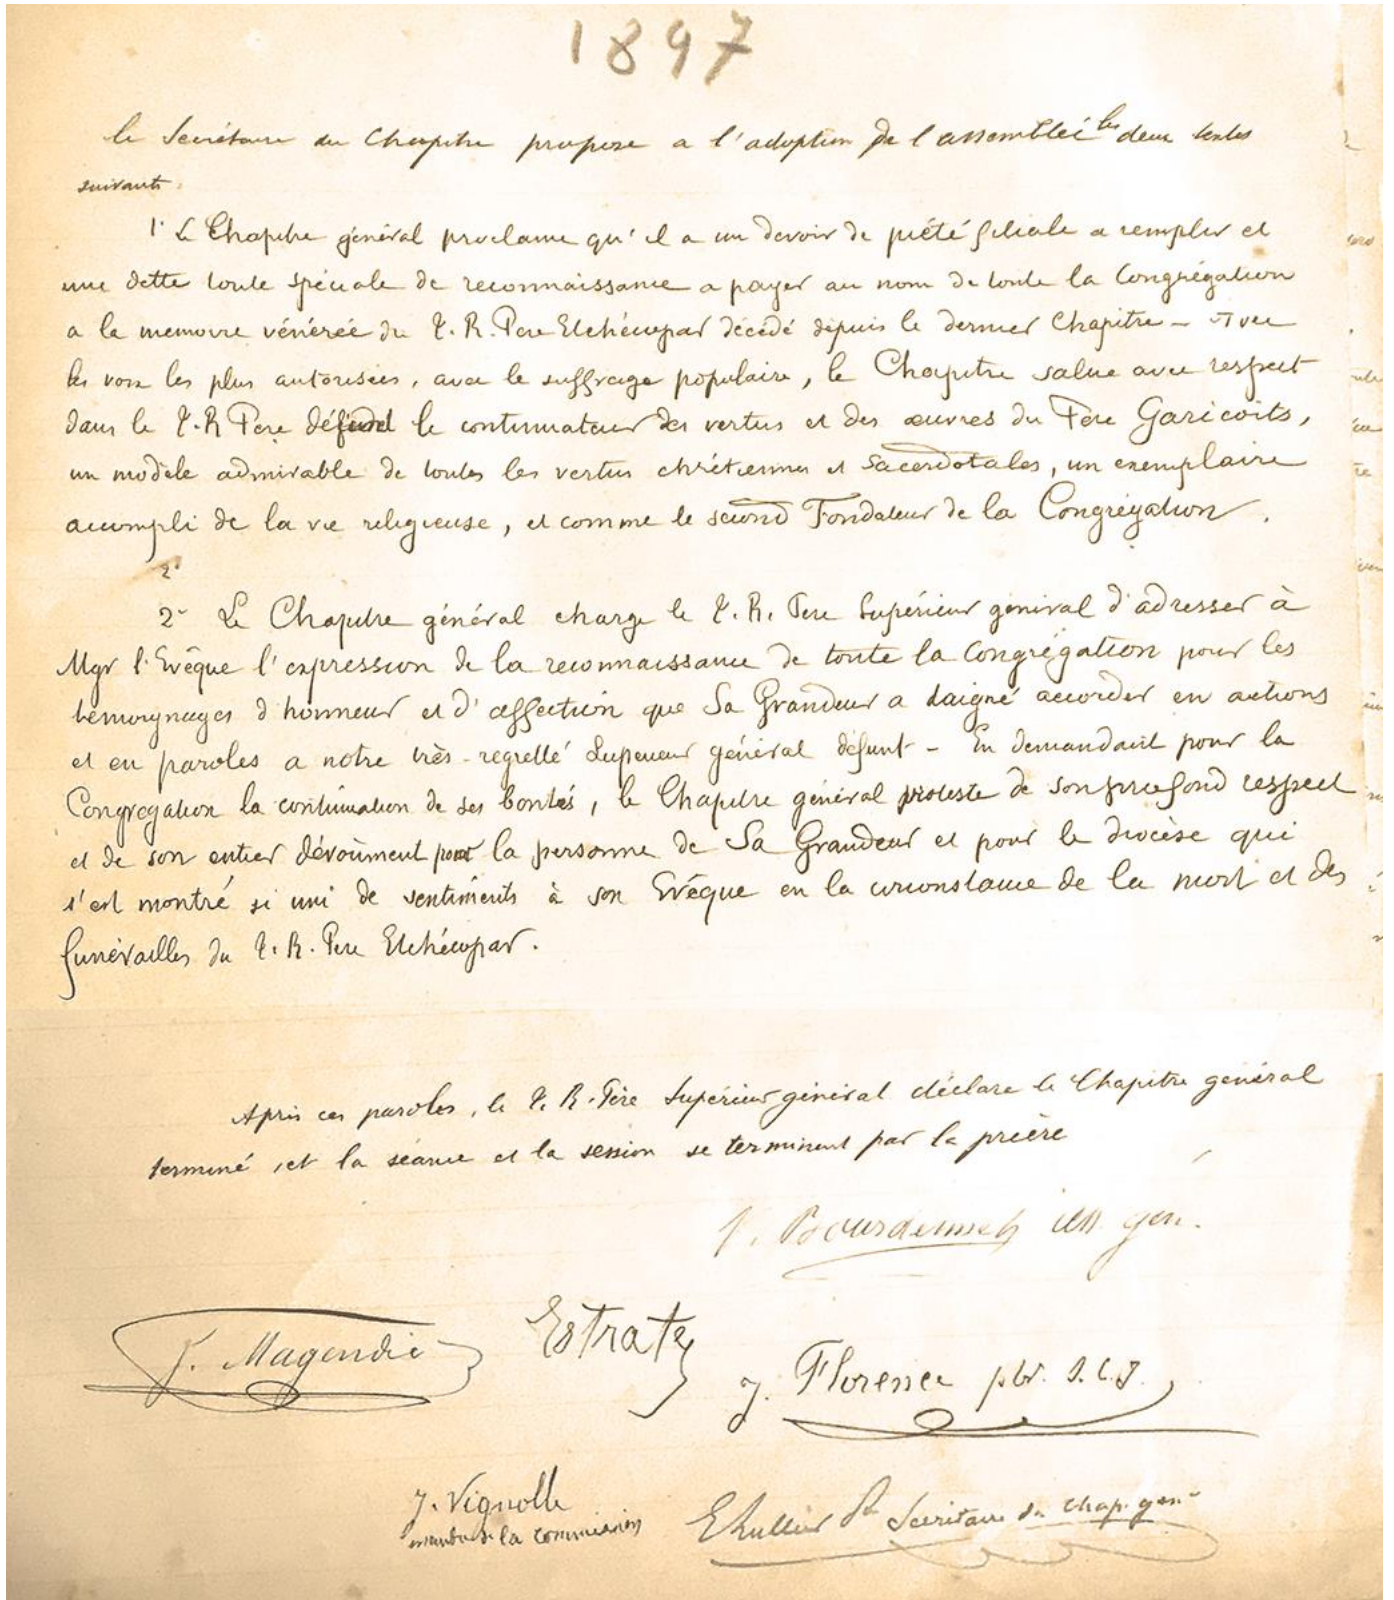 1897
le Secrétaire du Chapitre propose a l'adoption de l'assemblée les deux textes
suivants.
1° Le Chapitre général proclame qu'il a un devoir de piété filiale a remplir et
une dette toute spéciale de reconnaissance a payer au nom de toute la Congrégation
a la memoire vénérée du T. R. Pere Etchécopar décédé depuis le dernier Chapitre – Avec
les voix les plus autorisées, avec le suffrage populaire, le Chapitre salue avec respect
dans le T. R Pere défunt le continuateur des vertus et des œuvres du Père Garicoïts,
un modèle admirable de toutes les vertus chrétiennes et Sacerdotales, un exemplaire
accompli de la vie religieuse, et comme le second Fondateur de la Congrégation.
2°
2° Le Chapitre général charge le T. R. Pere Supérieur général d'adresser à
Mgr l'Evêque l'expression de la reconnaissance de toute la Congrégation pour les
témoignages d'honneur et d'affection que Sa Grandeur a daigné accorder en actions
et en paroles a notre très-regretté Superieur général défunt – En demandant pour la
Congrégation la continuation de ses bontés, le Chapitre général proteste de son profond respect
et de son entier dévoûment pour la personne de Sa Grandeur et pour le diocèse qui
s'est montré si uni de sentiments à son Evêque en la circonstance de la mort et des
funérailles du T. R. Pere Etchécopar.
Après ces paroles, le T. R. Père Supérieur général déclare le Chapitre général
terminé, et la séance et la session se terminent par la prière
Bourdenne gén.
J. Magendie
Estrate
J. Florence pbr. S.C.J.
J. Vignolle
membre de la commission
Secrétaire du chap. gén